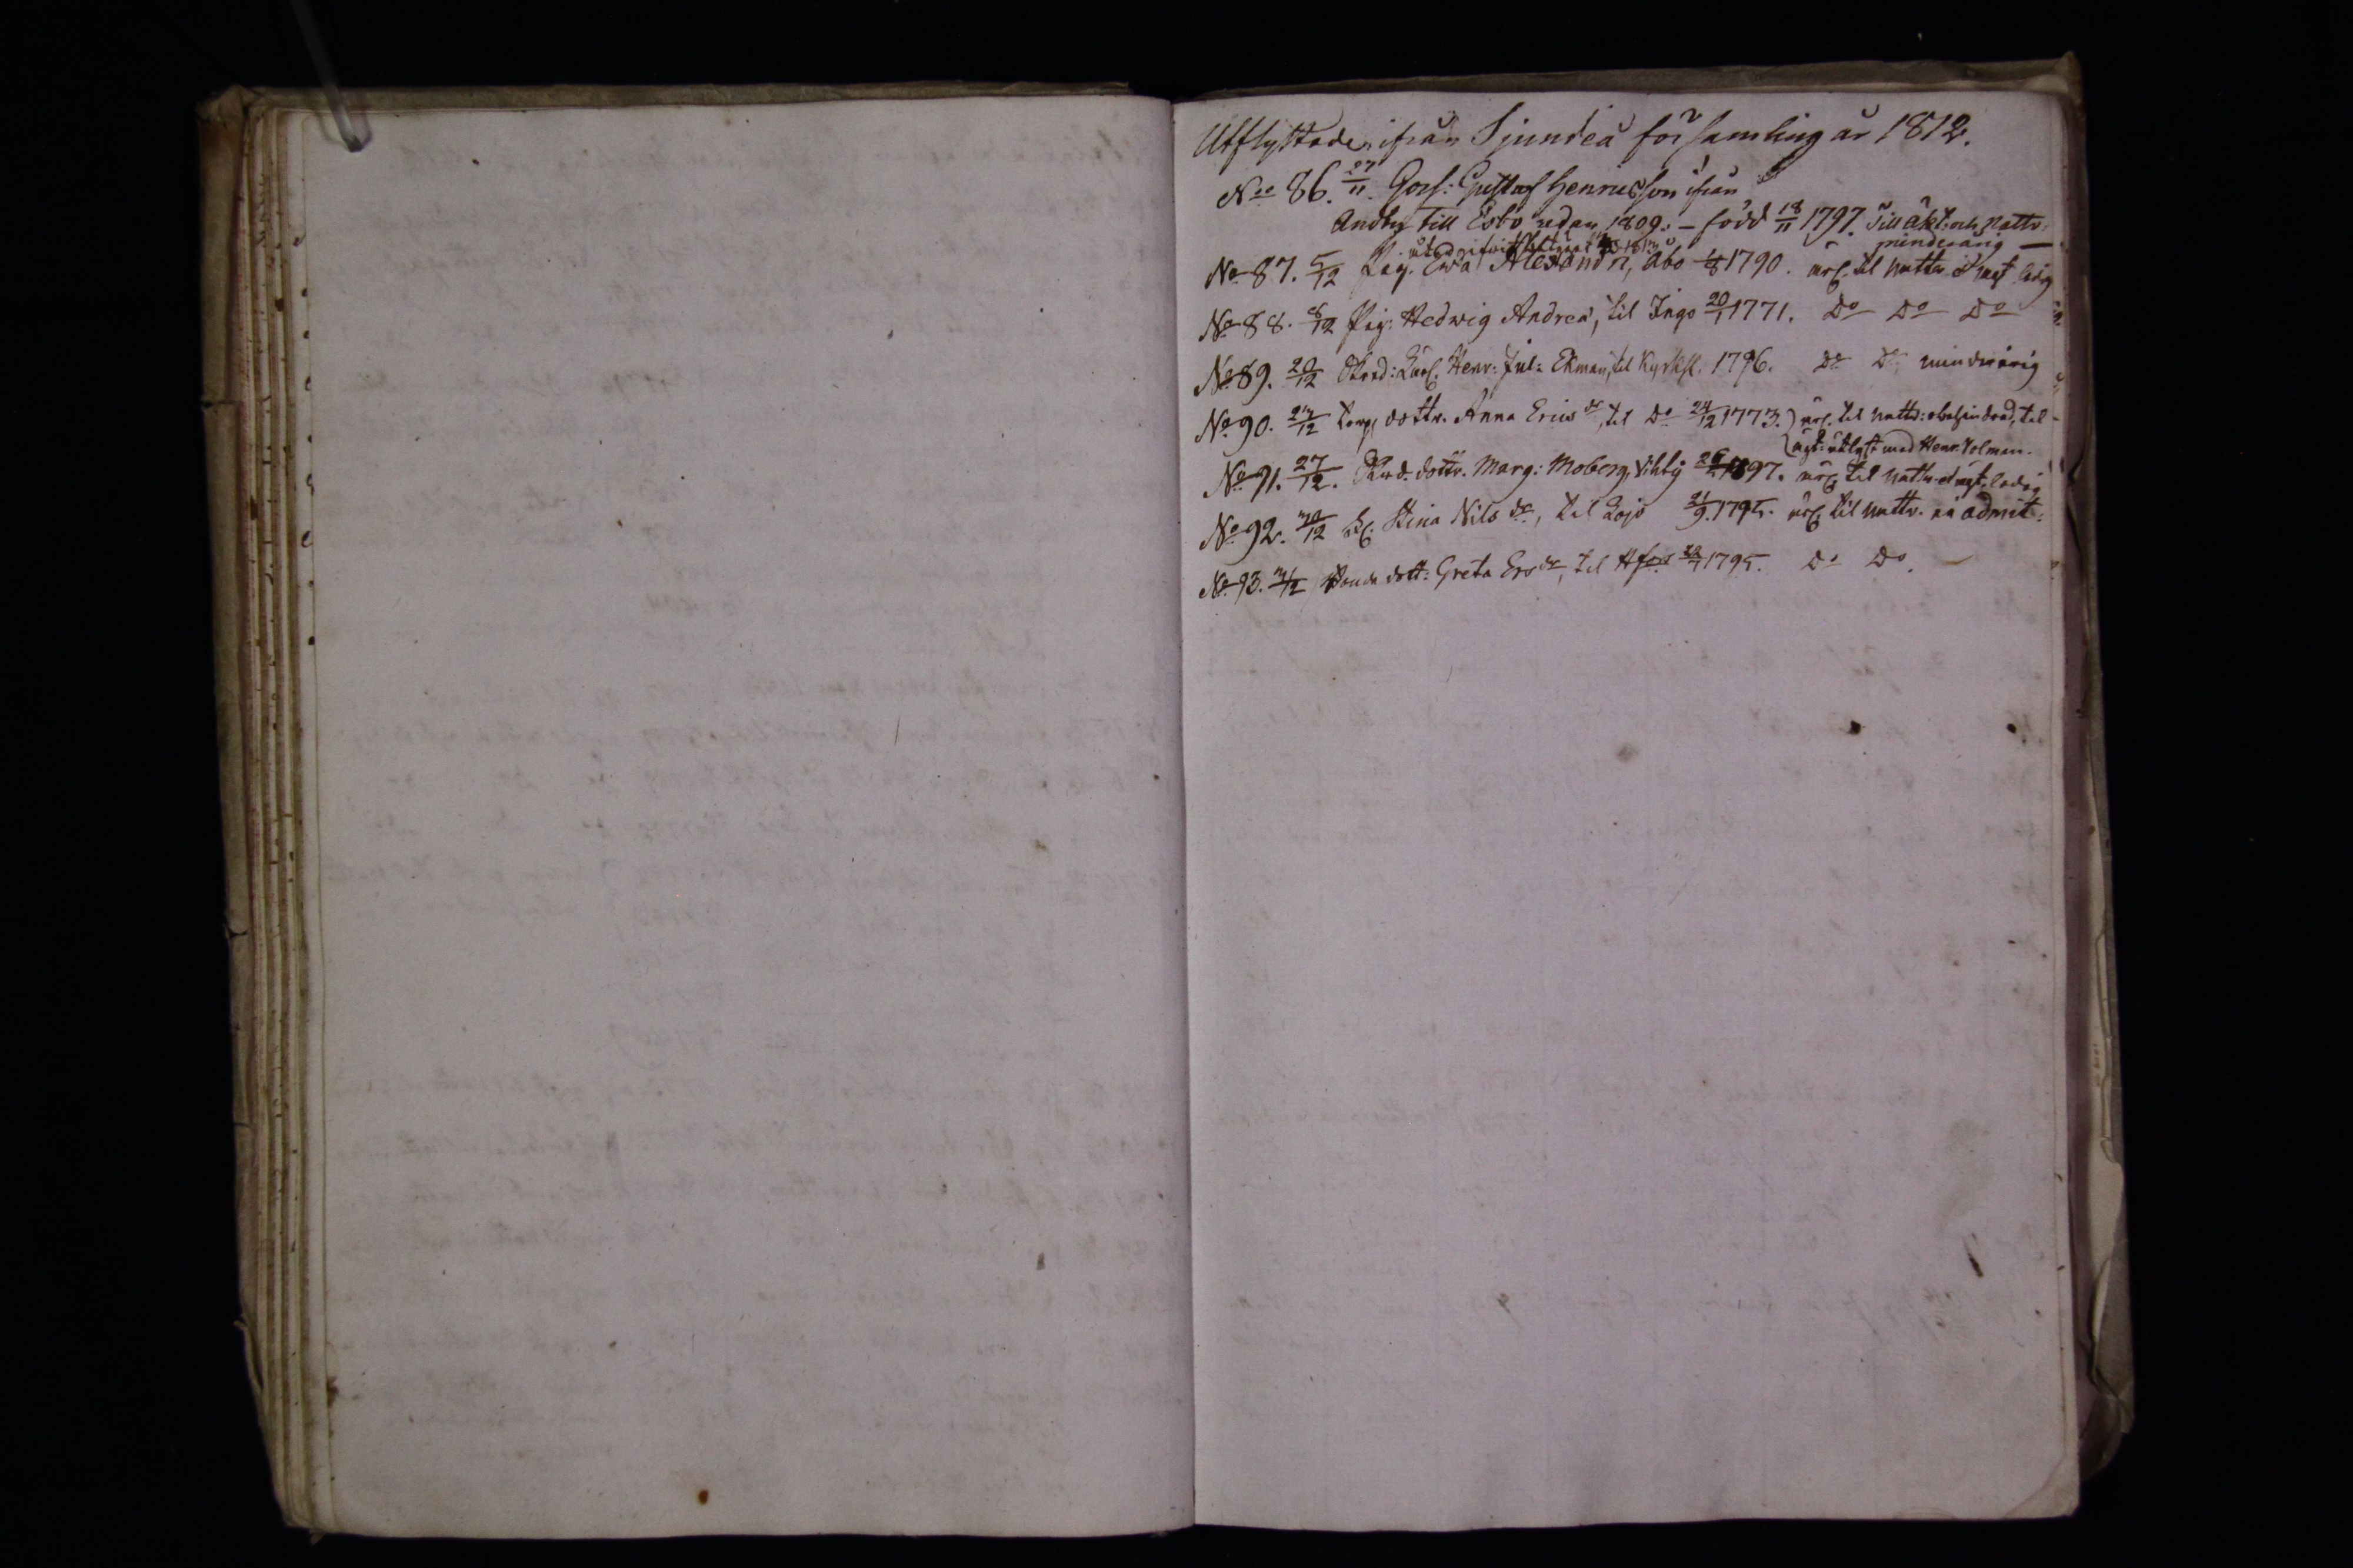 Utflyttade ifrån Sjundeå församling år 1812.
No 86. 27/11. Goss: Gustaf Henricsson ifrån
Andby till Esbo redan 1809. – född 18/11 1797. Till äkt: och nattv:
minderårig —
No 87. 5/12 Pig. Ewa Alexandri, Åbo 1790. til nattv. o ägt ledig
No 88. 8/12 Pig: Hedwig Andreæ, til Ingo 20/1 1771. Do Do Do
No 89. 20/12 Skrad: Lärl. Henr: Jul: Ekman, til Kyrksl. 1796. Do Do minderårig
No 90. 27/12 dottr. Anna Erics dr, til Do 24/12 1773. til nattv: obehindrad, til
ägt: utlyst med Henr. Holman.
No 91. 27/12. dottr. Marg: Moberg, Vihty 1797. til nattv. o ägt. ledig
No 92. 30/12 Stina Nils dr, til Lojo 21/9. 1795. til nattv. ej admit:
No 93. 31/12 Bonde dott: Greta Ers dr, til Hfors 1795. Do Do.